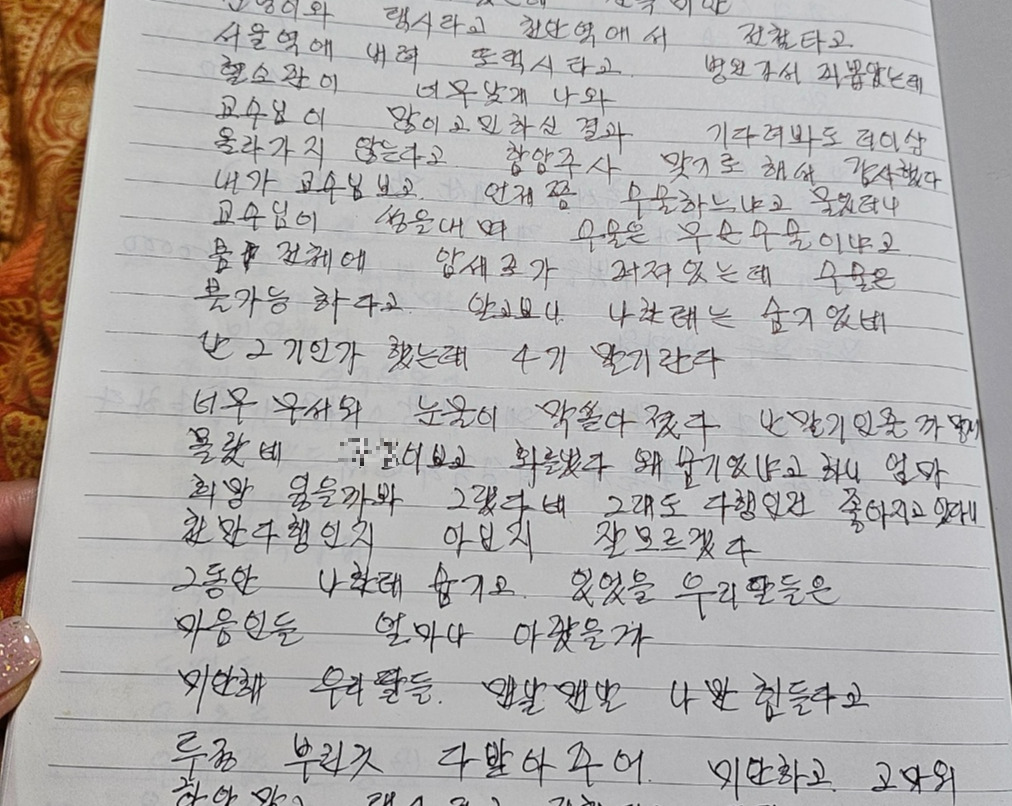 택시타고 천안역에서 전철타고
서울역에 내려 또택시타고 병원가서 피뽑았는데
혈소판이 너무낮게 나와
교수님이 많이고민하신 결과 기다려봐도 더이상
올라가지 않는다고 항암주사 맞기로 해서 감사했다
내가 교수님보고 언제쯤 수술하느냐고 물었더니
교수님이 썽을내며 수술은 무슨수술이냐고
몸 전체에 암세포가 퍼져있는데 수술은
불가능 하다고. 알고보니 나한테는 숨기었네
난 2기인가 했는데 4기 말기란다
너무 무서와 눈물이 막쏟아 졌다 난 말기인줄 까맣게
몰랐네 이보고 화를냈다 왜 숨기었냐고 하니 엄마
희망 잃을까봐 그랬다네 그래도 다행인건 좋아지고 있다니
천만다행인지 아닌지 잘모르겠다
그동안 나한테 숨기고 있었을 우리딸들은
마음인들 얼마나 아팠을까
미안해 우리딸들. 맨날맨날 나만 힘들다고
투정 부린것 다받아주어. 미안하고. 고마워